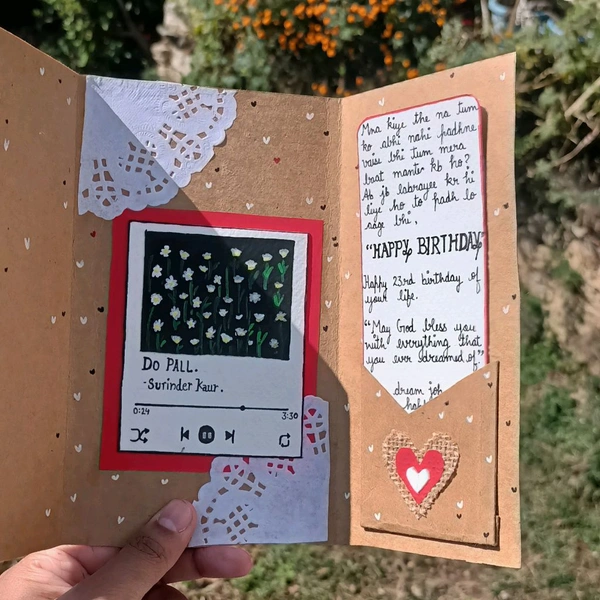 DO PALL.
-Surinder Kaur.
0:24
3:30
Mna kiye the na tum
ko abhi nahi padhne
vaise bhi tum mera
baat mante kb ho?
Ab jb labrayee kr hi
liye ho to padh lo
aage bhi,
"HAPPY BIRTHDAY"
Happy 23rd birthday of
your life.
"May God bless you
with everything that
you ever dreamed of."
dream job